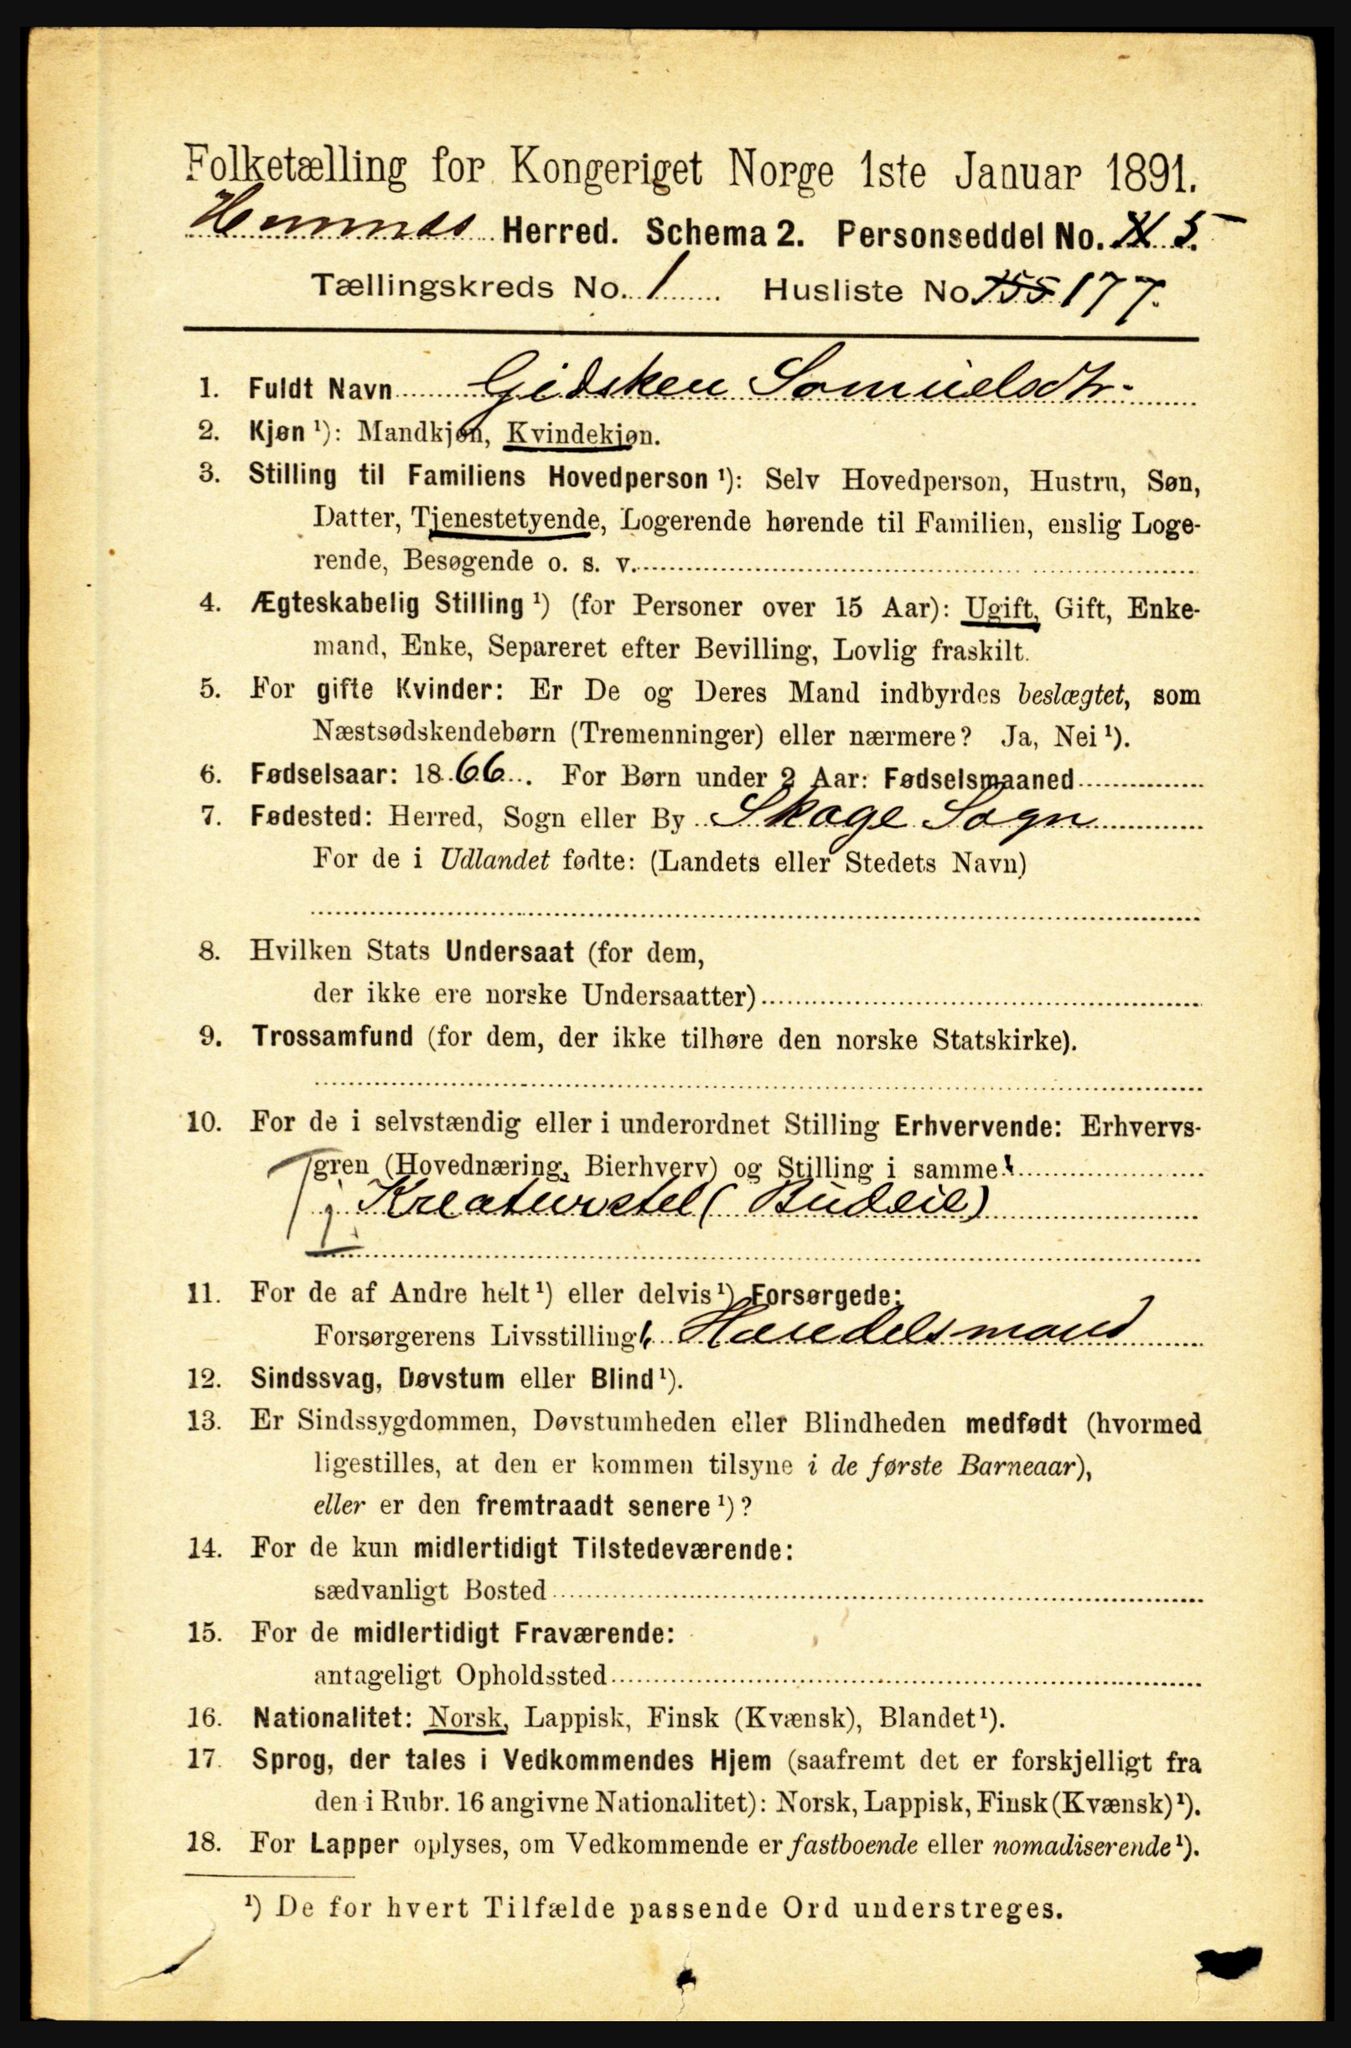 Folketælling for Kongeriget Norge 1ste Januar 1891.
Hemnæs Herred. Schema 2. Personseddel No. 5.
Tællingskreds No. 1 Husliste No 155 177.
1. Fuldt Navn Gidsken Samuelsdtr.
2. Kjøn ¹): Mandkjøn, Kvindekjøn.
3. Stilling til Familiens Hovedperson ¹): Selv Hovedperson, Hustru, Søn,
Datter, Tjenestetyende, Logerende hørende til Familien, enslig Loge-
rende, Besøgende o. s. v.
4. Ægteskabelig Stilling ¹) (for Personer over 15 Aar): Ugift, Gift, Enke-
mand, Enke, Separeret efter Bevilling, Lovlig fraskilt.
5. For gifte Kvinder: Er De og Deres Mand indbyrdes beslægtet, som
Næstsødskendebørn (Tremenninger) eller nærmere? Ja, Nei ¹).
6. Fødselsaar: 1866. For Børn under 2 Aar: Fødselsmaaned
7. Fødested: Herred, Sogn eller By Skage Sogn
For de i Udlandet fødte: (Landets eller Stedets Navn)
8. Hvilken Stats Undersaat (for dem,
der ikke ere norske Undersaatter)
9. Trossamfund (for dem, der ikke tilhøre den norske Statskirke).
10. For de i selvstændig eller i underordnet Stilling Erhvervende: Erhvervs-
gren (Hovednæring, Bierhverv) og Stilling i samme:
Kreaturstel (Budeie)
11. For de af Andre helt ¹) eller delvis ¹) Forsørgede:
Forsørgerens Livsstilling: Handelsmand
12. Sindssvag, Døvstum eller Blind ¹).
13. Er Sindssygdommen, Døvstumheden eller Blindheden medfødt (hvormed
ligestilles, at den er kommen tilsyne i de første Barneaar),
eller er den fremtraadt senere ¹)?
14. For de kun midlertidigt Tilstedeværende:
sædvanligt Bosted
15. For de midlertidigt Fraværende:
antageligt Opholdssted
16. Nationalitet: Norsk, Lappisk, Finsk (Kvænsk), Blandet ¹).
17. Sprog, der tales i Vedkommendes Hjem (saafremt det er forskjelligt fra
den i Rubr. 16 angivne Nationalitet): Norsk, Lappisk, Finsk (Kvænsk) ¹).
18. For Lapper oplyses, om Vedkommende er fastboende eller nomadiserende ¹).
¹) De for hvert Tilfælde passende Ord understreges.